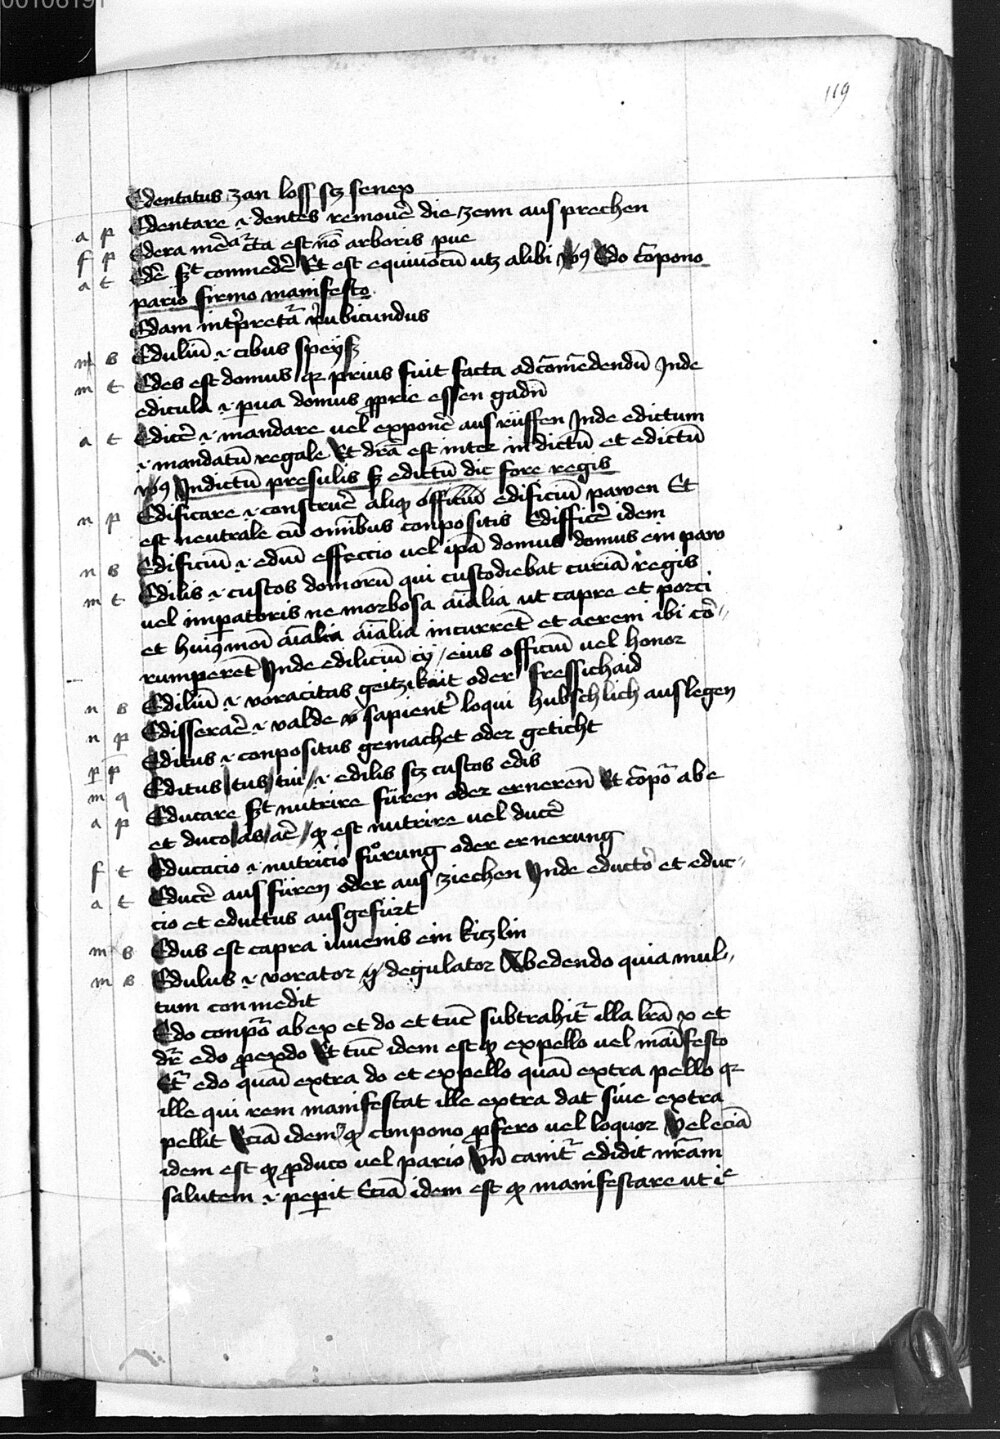 00106191
119
Edentatus zan loss sz senex
a p Edentare .i. dentes remouē die zenn aus prechen
f p Edera mē cta est nō arboris pue
a t Edē sꝫt commedē Et est equiuocū utz alibi vꝰ Edo cōpono
pario firmo manifesto
Edam intꝑpretāt rubicundus
m s Eduliū .i. cibus speyß
m t Edes est domus qꝛ prius fuit facta ad cōmēdendū Inde
edicula .i. pua domus ꝓprie essen gadn̄
a t Edicē .i. mandare uel exponē aus rüffen Inde edictum
.i. mandatū regale Et dr̄a est inter indictū et edictū
vꝰ Indictū presulis sꝫ edictū dic fore regis
n p Edificare .i. construē aliqꝫ edificiū pawen Et
est neutrale cū om̄ibus conpositis Edifficē idem
n s Edificiū .i. ediū effeccio uel ip̄a domus domus ein paw
m t Edilis .i. custos domorū qui custodiebat curiā regis
uel impatoris ne morbosa aīalia ut capre et porci
et huiꝰmōi aīalia aīalia incurrēt et aerem ibi cō-
rumperēt Inde ediliciū cij / eius officiū uel honor
n s Ediliū .i. voracitas geitzikait oder fressichaid
n p Edisseraē .i. valde sapientꝰ loqui hubschlich auslegen
p p Editus .i. conpositus gemachet oder geticht
m q Editus / tus / tui / .i. edilis sz custos edis
a p Educare sꝫt nutrire füren oder ernerenn̄ Et cōpōt ab e
et duco / as / aē / qꝫ est nutrire uel ducē
f t Educacio .i. nutricio fůrung oder ernerung
a t Educē aus füren oder aus ziechen Inde eductor et educ-
cio et eductus ausgefürt
m s Edus est capra iuuenis ein kiczlin
m s Edulus .i. vorator degulator Ab edendo quia mul-
tum conmedit
Edo conpōt ab ex et do et tūc subtrahit̄ illa lr̄a x et
dr̄ edo ꝓ exdo Et tūc idem est qꝫ expello uel māifesto
Et̄ edo quāi extra do et expello quāi extra pello qꝛ
ille qui rem manifestat ille extra dat siue extra
pellit Eciā idem qꝫ compono ꝓfero uel loquor Vel eciā
idem est qꝫ ꝓduco uel pario Vn̄ canit̄ edidit nr̄am
salutem .i. pepit Eciā idem est qꝫ manifestare ut i